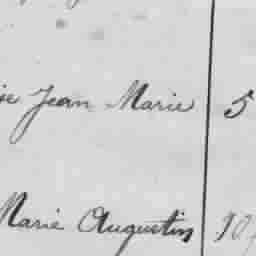 Jean Marie 5
Marie Augustin 10